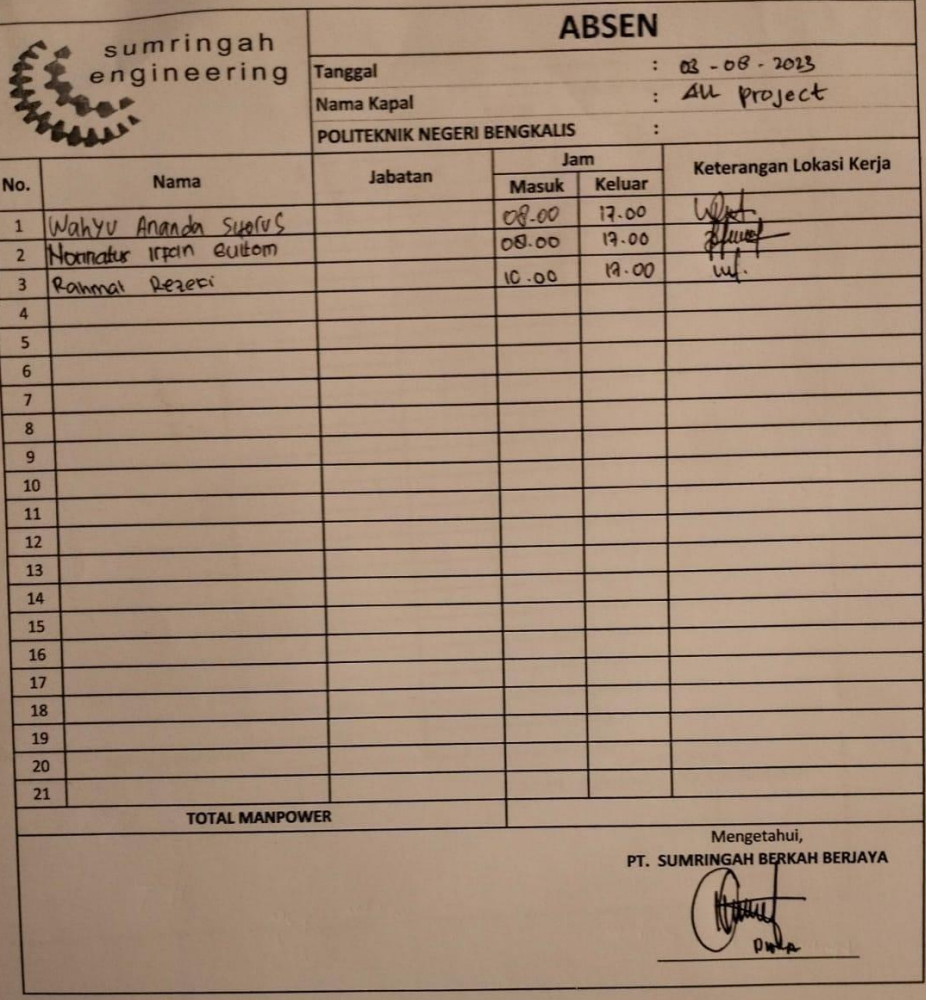 sumringah
engineering
ABSEN
Tanggal : 03 - 08 - 2023
Nama Kapal : All project
POLITEKNIK NEGERI BENGKALIS :
No. Nama Jabatan Jam Keterangan Lokasi Kerja
Masuk Keluar
1 Wahyu Ananda 08.00 17.00
2 Irfan 08.00 17.00
3 Rahmat Rezeki 10.00 17.00
4
5
6
7
8
9
10
11
12
13
14
15
16
17
18
19
20
21
TOTAL MANPOWER
Mengetahui,
PT. SUMRINGAH BERKAH BERJAYA